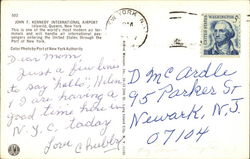 502
JOHN F. KENNEDY INTERNATIONAL AIRPORT
(Idlewild), Queens, New York
This is one of the world's most modern air terminals and will handle all international passengers entering the United States through the Port of New York.
Color Photo by Port of New York Authority
NEW YORK, N.Y.
Dear Mom,
Just a few lines
to say hello. Helen
& I are having a
good time here in
N.Y.C. today
Love Chubby
D McArdle
95 Parker St
Newark, N.J.
07104